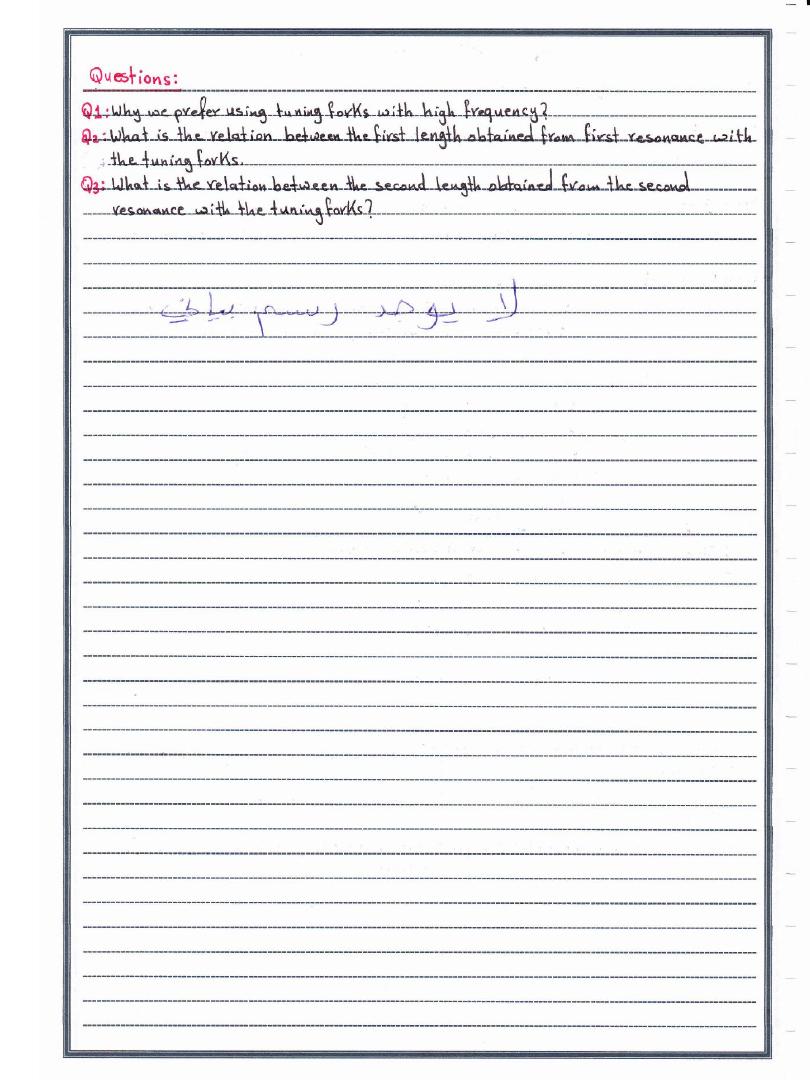 Questions:
Q1: Why we prefer using tuning forks with high frequency?
Q2: What is the relation between the first length obtained from first resonance with
the tuning forks.
Q3: What is the relation between the second length obtained from the second
resonance with the tuning forks?
لا يوجد رسم بياني